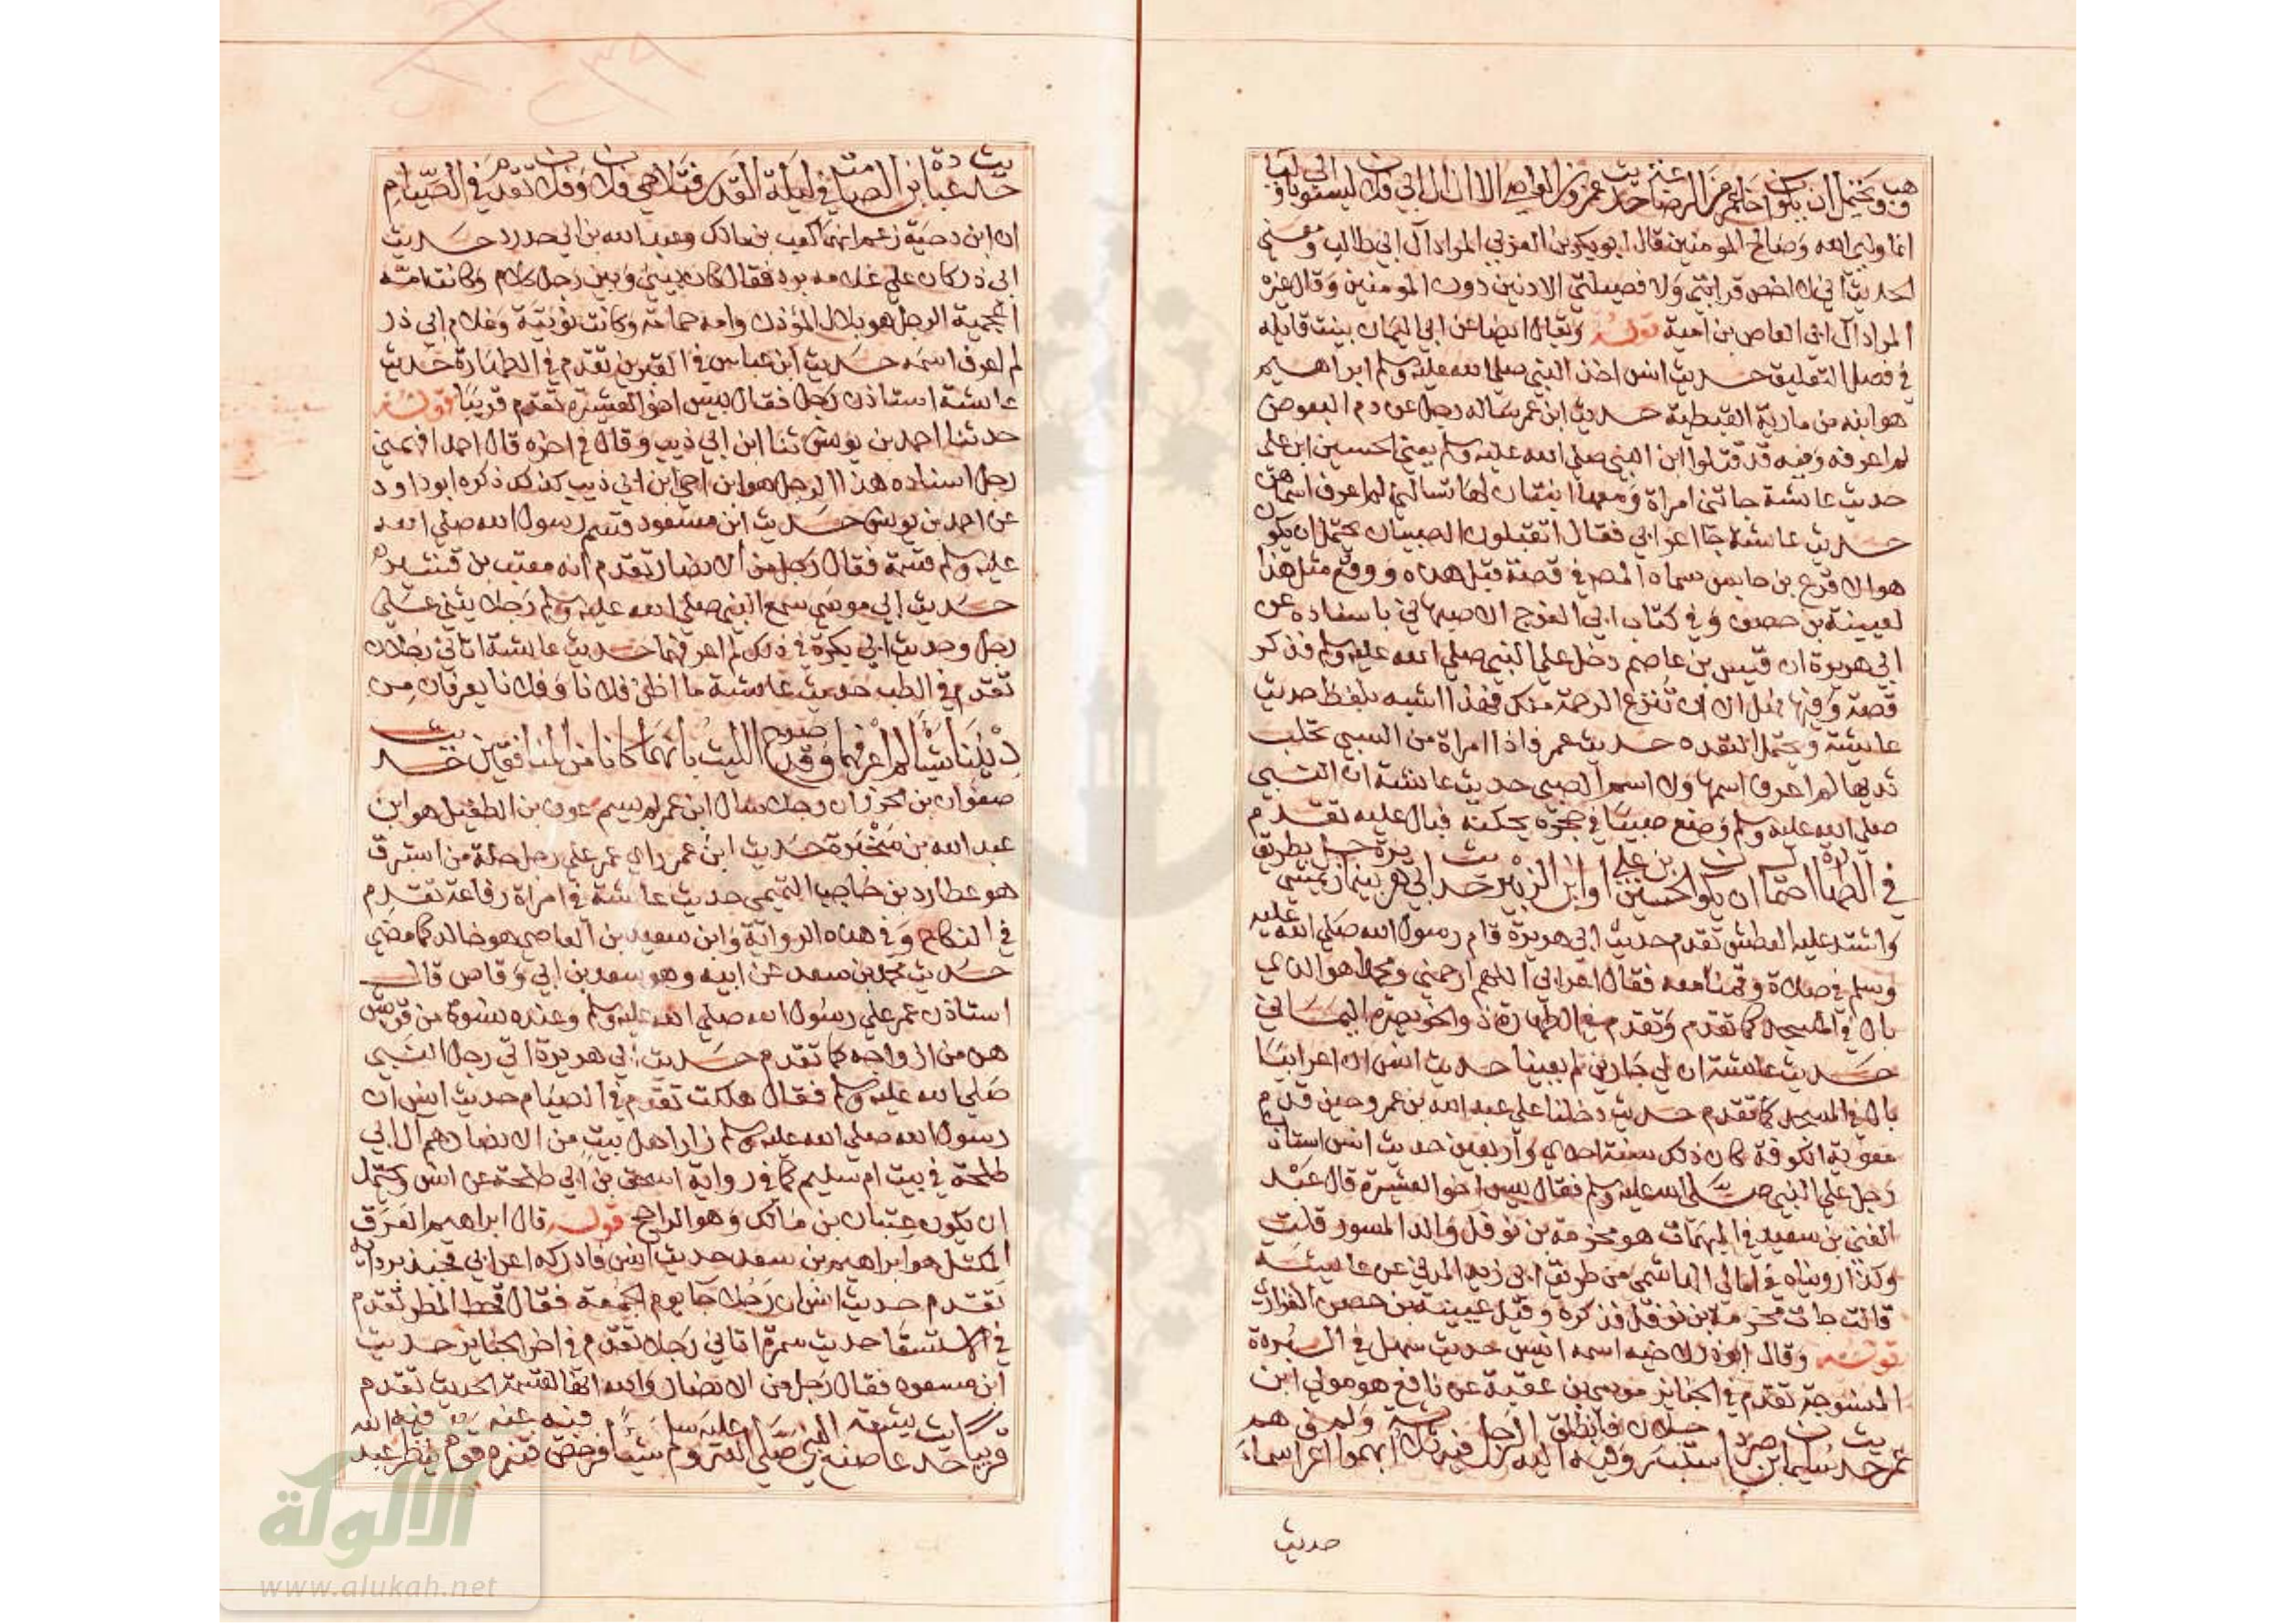 وهب ويحتمل ان يكون اخا عمر من الرضاعة حديث عمرو بن العاص الا ان ال ابي فلان ليسوا
انما وليي الله وصالح المومنين قال ابو بكر بن العربي المراد آل ابي طالب ومعنى
الحديث اني لا اخص قرابتي ولا فصيلتي الادنين دون المومنين وقال غيره
المراد آل ابي العاص بن امية قوله ويقال ايضا عن ابي اليمان بينت قايله
في فصل التعليق حديث انس اخذ النبي صلى الله عليه وسلم ابراهيم
هو ابنه من مارية القبطية حديث ابن عمر ساله رجل عن دم البعوض
لم اعرفه وفيه قد قتلوا ابن النبي صلى الله عليه وسلم يعني الحسين ابن علي
حديث عايشة جاتني امراة ومعها ابنتان لها تسالني لم اعرف اسماهن
حديث عايشة جا اعرابي فقال اتقبلون الصبيان يحتمل ان يكون
هو الاقرع بن حابس سماه المصر في قصة قبل هذه ووقع مثل هذا
لعيينة بن حصن وفي كتاب ابي الفرج الاصبهاني باسناده عن
ابي هريرة ان قيس بن عاصم دخل على النبي صلى الله عليه وسلم فذكر
قصة وفيها هل الا ان تنزع الرحمة منك فهذا اشبه بلفظ حديث
عايشة ويحتمل التعدد حديث عمر فاذا امراة من السبي تحلب
ثديها لم اعرف اسمها ولا اسم الصبي حديث عايشة ان النبي
صلى الله عليه وسلم وضع صبيا في حجره يحنكه فبال عليه تقدم
في الطهارة احتمال ان يكون الحسين بن علي او ابن الزبير حديث ابي هريرة بينما رجل يمشي بطريق
واشتد عليه العطش تقدم حديث ابي هريرة قام رسول الله صلى الله عليه
وسلم في صلاة وقمنا معه فقال اعرابي اللهم ارحمني ومحمدا هو الذي
بال في المسجد كما تقدم وتقدم في الطهارة ذو الخويصرة اليماني
حديث عايشة ان لي جارين لم يعينا حديث انس ان اعرابيا
بال في المسجد كما تقدم حديث دخلنا على عبد الله بن عمرو حين قدم
معوية الكوفة كان ذلك سنة احدى واربعين حديث انس استاذن
رجل على النبي صلى الله عليه وسلم فقال بيس اخو العشيرة قال عبد
الغني بن سعيد في المبهمات هو مخرمة بن نوفل والد المسور قلت
وكذا رويناه في امالي الهاشمي من طريق ابي زيد المدني عن عايشة
قالت جا مخرمة بن نوفل فذكره وقيل عيينة بن حصن الفزاري
قوله وقال ابو ذر لاخيه اسمه انيس حديث سهل في البردة
المنسوجة تقدم في الجنايز موسى بن عقبة عن نافع هو مولى ابن
عمر حديث سليمان ابن صرد استب رجلان وفيه فانطلق اليه الرجل فيه ثلاثة ابهموا ولم اعرف اسماهم
حديث
حديث عبادة بن الصامت في ليلة القدر فتلاحى فلان وفلان تقدم في الصيام
ان ابن دحية زعم انهما كعب بن مالك وعبد الله بن ابي حدرد حديث
ابي ذر كان على غلامه برد فقال كان بيني وبين رجل كلام وكانت امه
اعجمية الرجل هو بلال المؤذن وامه حمامة وكانت نوبية وغلام ابي ذر
لم اعرف اسمه حديث ابن عباس في القبرين تقدم في الطهارة حديث
عايشة استاذن رجل فقال بيس اخو العشيرة تقدم قريبا قوله
حدثنا احمد بن يونس ثنا ابن ابي ذيب وقال في اخره قال احمد افهمني
رجل اسناده هذا الرجل هو ابن اخي ابن ابي ذيب كذلك ذكره ابو داود
عن احمد بن يونس حديث ابن مسعود قسم رسول الله صلى الله
عليه وسلم قسمة فقال رجل من الانصار تقدم انه معتب بن قشير
حديث ابي موسى سمع النبي صلى الله عليه وسلم رجلا يثني على
رجل وحديث ابي بكرة في ذلك لم اعرفهما حديث عايشة اتاني رجلان
تقدم في الطب حديث عايشة ما اظن فلانا وفلانا يعرفان من
ديننا شيا لم اعرفهما وقد صرح الليث بانهما كانا من المنافقين حديث
صفوان بن محرز ان رجلا سال ابن عمر لم يسم عوف بن الطفيل هو ابن
عبد الله بن سخبرة حديث ابن عمر راى عمر على رجل حلة من استبرق
هو عطارد بن حاجب التميمي حديث عايشة في امراة رفاعة تقدم
في النكاح وفي هذه الرواية وابن سعيد بن العاصي هو خالد كما مضى
حديث محمد بن سعد عن ابيه وهو سعد بن ابي وقاص قال
استاذن عمر على رسول الله صلى الله عليه وسلم وعنده نسوة من قريش
هن من ازواجه كما تقدم حديث ابي هريرة اتى رجل النبي
صلى الله عليه وسلم فقال هلكت تقدم في الصيام حديث انس ان
رسول الله صلى الله عليه وسلم زار اهل بيت من الانصار هم ال ابي
طلحة في بيت ام سليم كما في رواية اسحق بن ابي طلحة عن انس ويحتمل
ان يكون عتبان بن مالك وهو الراجح قوله قال ابراهيم العرق
المكتل هو ابراهيم بن سعد حديث انس فادركه اعرابي فجبذ بردايه
تقدم حديث انس ان رجلا جا يوم الجمعة فقال قحط المطر تقدم
في الاستسقا حديث سمرة اتاني رجلان تقدم في اخر الجنايز حديث
ابن مسعود فقال رجل من الانصار والله انها لقسمة الحديث تقدم
قريبا حديث عايشة صنع النبي صلى الله عليه وسلم شيئا فرخص فيه فتنزه عنه قوم فيه